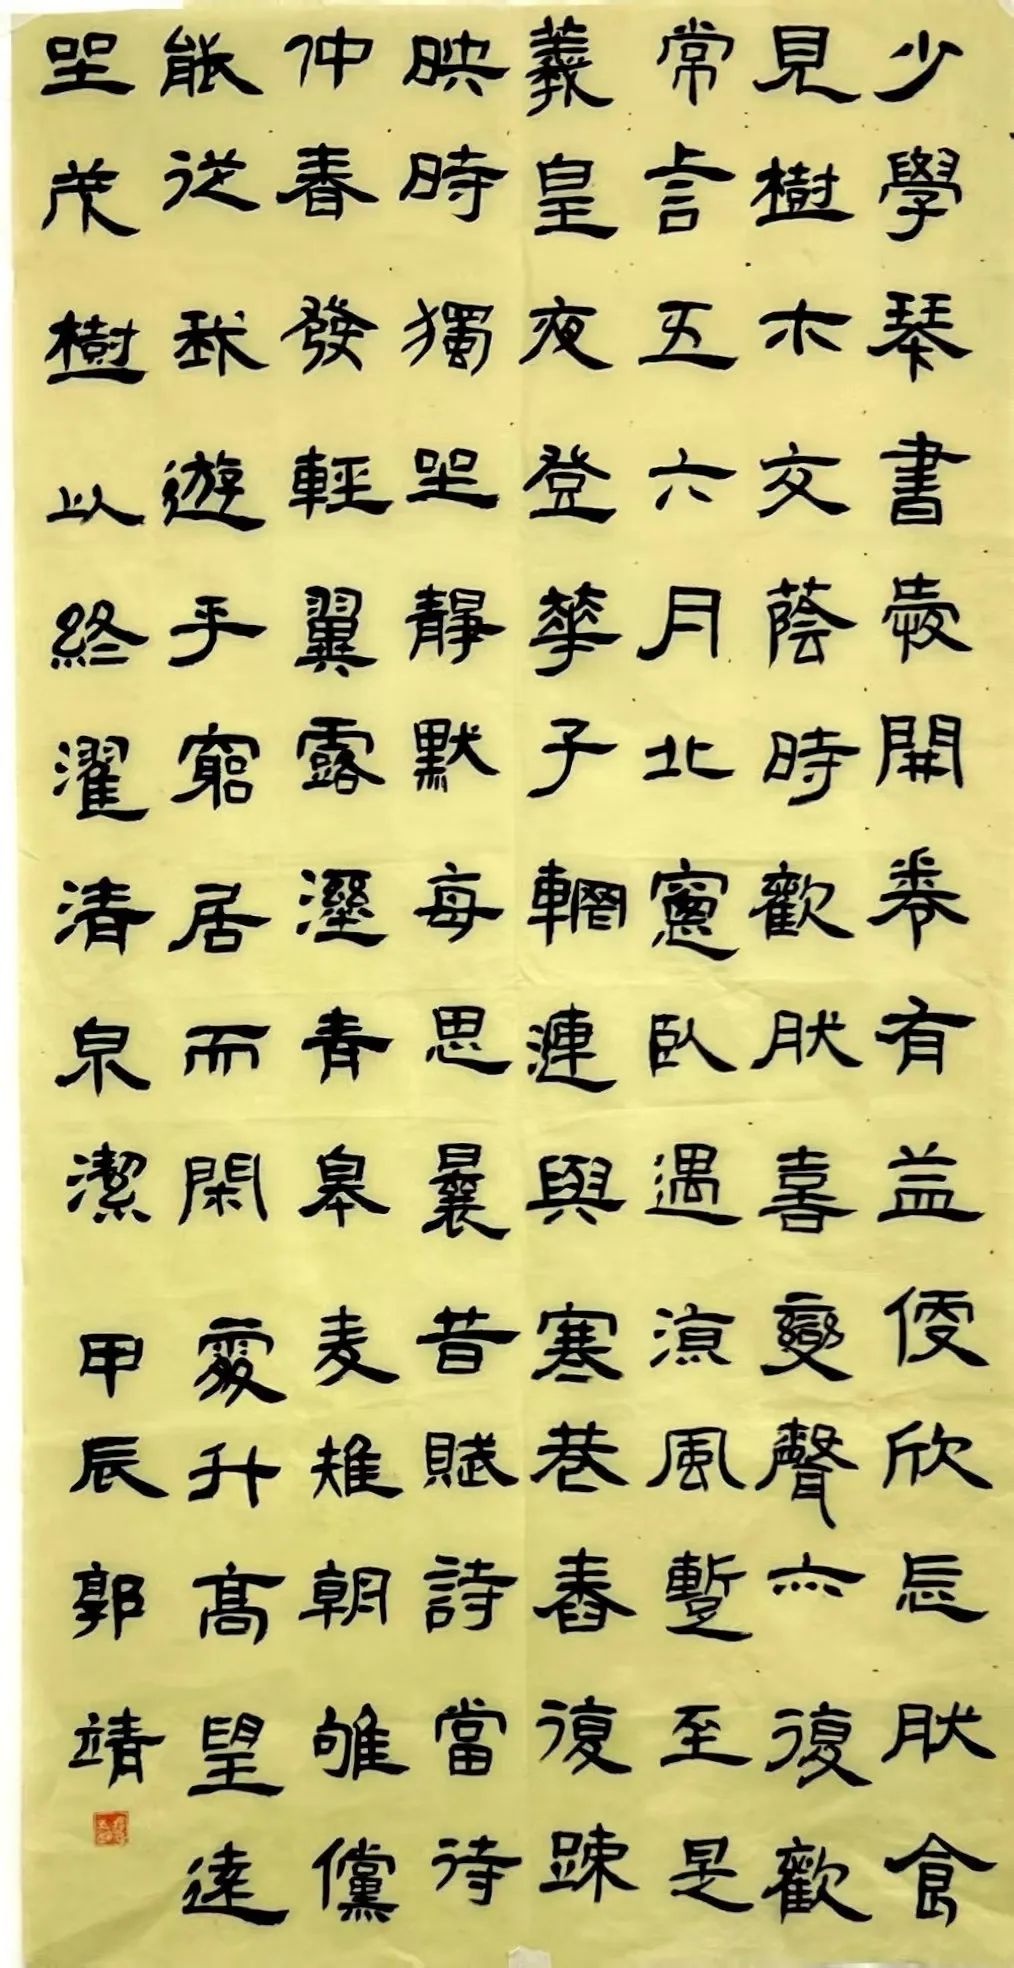 少學琴書爰開卷有益便欣忘肰食
見樹木交蔭時歡肰喜變聲亦復歡
常言五六月北窻臥遇涼風暫至是
羲皇夜登華子輞漣與寒巷舂復踈
映時獨坐靜默每思曩昔賦詩當待
仲春發輕翼露溼青皋麦雉朝雊儻
能從我遊乎窮居而閑處升高望遠
坐茂樹以終濯清泉潔甲辰郭靖